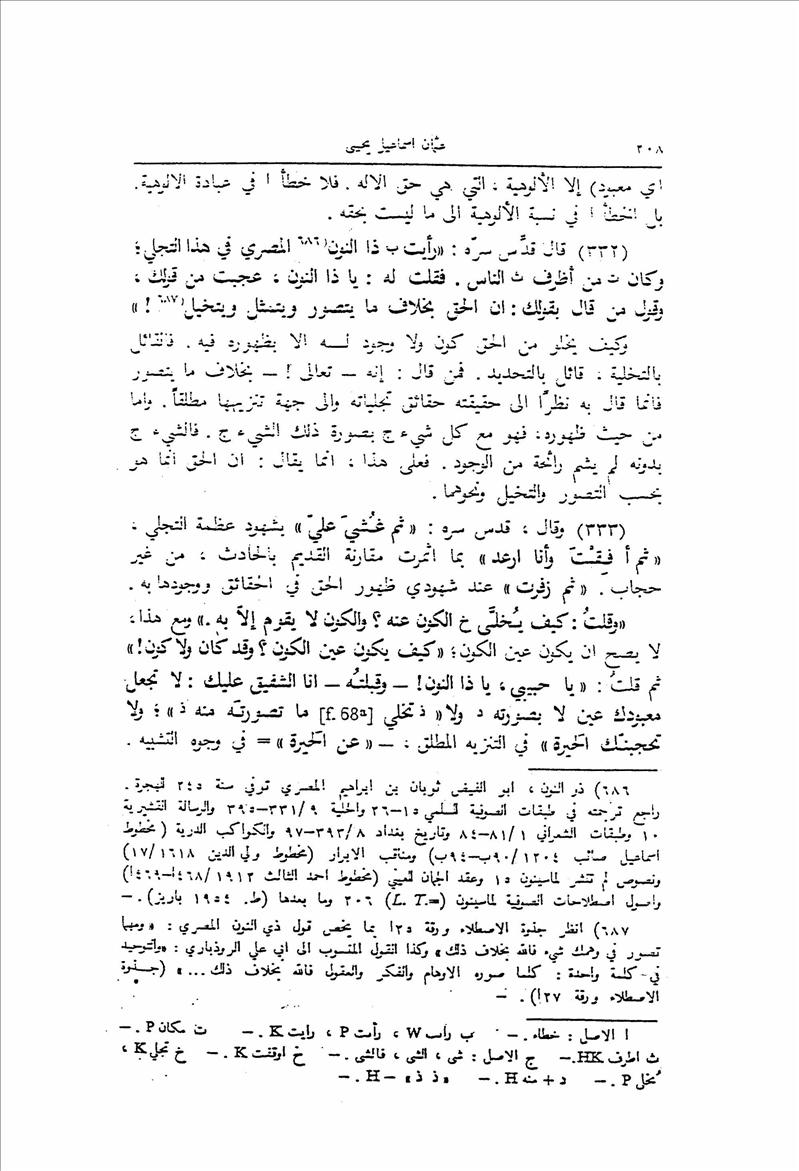 ٢٠٨ عثمان اسماعيل يحيى
اي معبود) إلا الألوهية ، التي هي حق الاله . فلا خطأ ا في عبادة الالوهية.
بل الخطأ ا في نسبة الألوهية الى ما ليست بحقه .
(٣٣٢) قال قدَّس سرّه : «رأيت ب ذا النون(٦٨٦ المصري في هذا التجلي؛
وكان ت من أظرف ث الناس . فقلت له : يا ذا النون ، عجبت من قولك ،
وقول من قال بقولك : ان الحق بخلاف ما يتصور ويتمثل ويتخيل(٦٨٧ ! »
وكيف يخلو من الحق كون ولا وجود لـه الا بظهوره فيه . فالقائل
بالتخلية ، قائل بالتحديد . فمن قال : إنه – تعالى ! – بخلاف ما يتصور
فانما قال به نظرًا الى حقيقته حقائق تجلياته والى جهة تنزيهها مطلقاً . واما
من حيث ظهوره، فهو مع كل شيء ج بصورة ذلك الشيء ج . فالشيء ج
بدونه لم يشم رائحة من الوجود . فعلى هذا ، انما يقال : ان الحق انما هو
بحسب التصور والتخيل ونحوهما .
(٣٣٣) وقال ، قدس سره : « ثم غُشيَ عليّ » بشهود عظمة التجلي ،
« ثم أفِقْتُ وأنا ارعد » بما اثمرت مقارنة القديم بالحادث ، من غير
حجاب . « ثم زفرت » عند شهودي ظهور الحق في الحقائق ووجودها به .
«وقلتُ : كيف يُخلَّى خ الكون عنه ؟ والكون لا يقوم إلاَّ به .» ومع هذا،
لا يصح ان يكون عين الكون؛ «كيف يكون عين الكون ؟ وقد كان ولا كون!»
ثم قلتُ : « يا حبيبي ، يا ذا النون! – وقبلتُه – انا الشفيق عليك : لا تجعل
معبودك عين لا بصورته د ولا« ذ تخلي [f. 68a] ما تصورتَه منه ذ» ؛ ولا
تحجبنّك الحيرة » في التنزيه المطلق ، – « عن الحيرة » = في وجوه التشبيه .
٦٨٦) ذو النون ، ابو الفيض ثوبان بن ابراهيم المصري توفي سنة ٢٤٥ للهجرة .
راجع ترجمته في طبقات الصوفية للسلمي ١٥–٢٦ والحلية ٩/٣٣١–٣٩٥ والرسالة القشيرية
١٠ وطبقات الشعراني ١/٨١–٨٤ وتاريخ بغداد ٨/٣٩٣–٩٧ والكواكب الدرية (مخطوط
اسماعيل صائب ١٢٠٤/٩٠ب–٩٤ب) ومناقب الابرار (مخطوط ولي الدين ١٦١٨/١٧)
ونصوص لم تنشر لماسينون ١٥ وعقد الجمان للعيني (مخطوط احمد الثالث ٢٩١٢/٤٦٨ا–٤٦٩ا)
واصول اصطلاحات الصوفية لماسينون (=L. T.) ٢٠٦ وما بعدها (ط. ١٩٥٤ باريز). –
٦٨٧) انظر جذوة الاصطلاء ورقة ٢٥ا بما يخص قول ذي النون المصري : « ومهما
تصور في وهمك شيء فالله بخلاف ذلك » وكذا القول المنسوب الى ابي علي الروذباري : «والتوحيد
في كلمة واحدة : كلما صوره الاوهام والفكر والعقول فالله بخلاف ذلك ... » (جـذوة
الاصطلاء ورقة ٢٧ا) . –
ا الاصل : خطاء . – ب W ، رأيت P ، رايت K . – ت مكان P . –
ث اطرف HK. – ج الاصل : شى ، الشى ، فالشى . – خ اوقفت K . – خ تجلي K ،
يُخلى P . – د + منه H . – «ذ ذ» – H . –